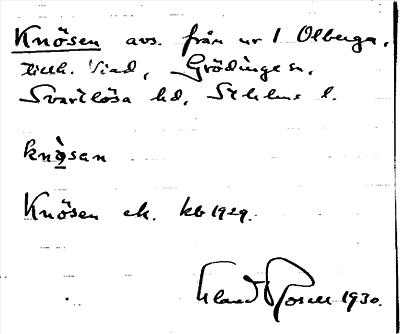 Knösen avs. från nr 1 Olberga,
Viad, Grödinge sn,
Svartlösa hd, Sthlms l.
knò̲san
Knösen ek. kb 1929.
Rosell 1930.